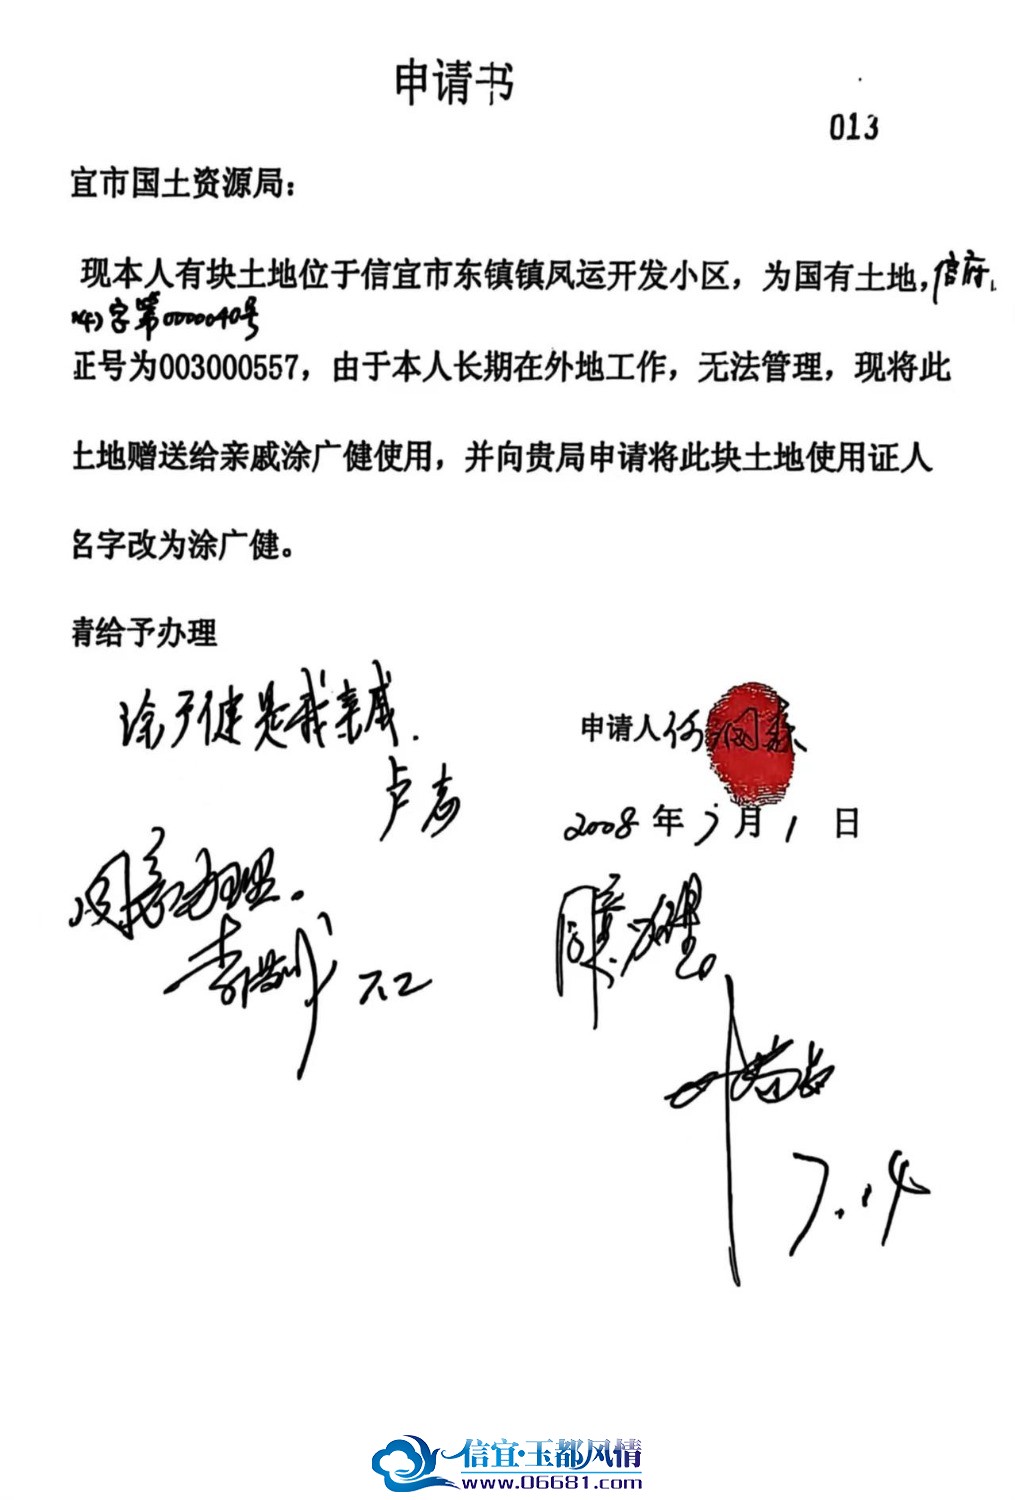 申请书
013
宜市国土资源局：
现本人有块土地位于信宜市东镇镇凤运开发小区，为国有土地，信府
字第0000040号
证号为003000557，由于本人长期在外地工作，无法管理，现将此
土地赠送给亲戚涂广健使用，并向贵局申请将此块土地使用证人
名字改为涂广健。
请给予办理
涂广健是我亲戚.
申请人何
卢志
2008年7月1日
同意办理.
同意办理
7.2
7.14
信宜·玉都风情
www.06681.com